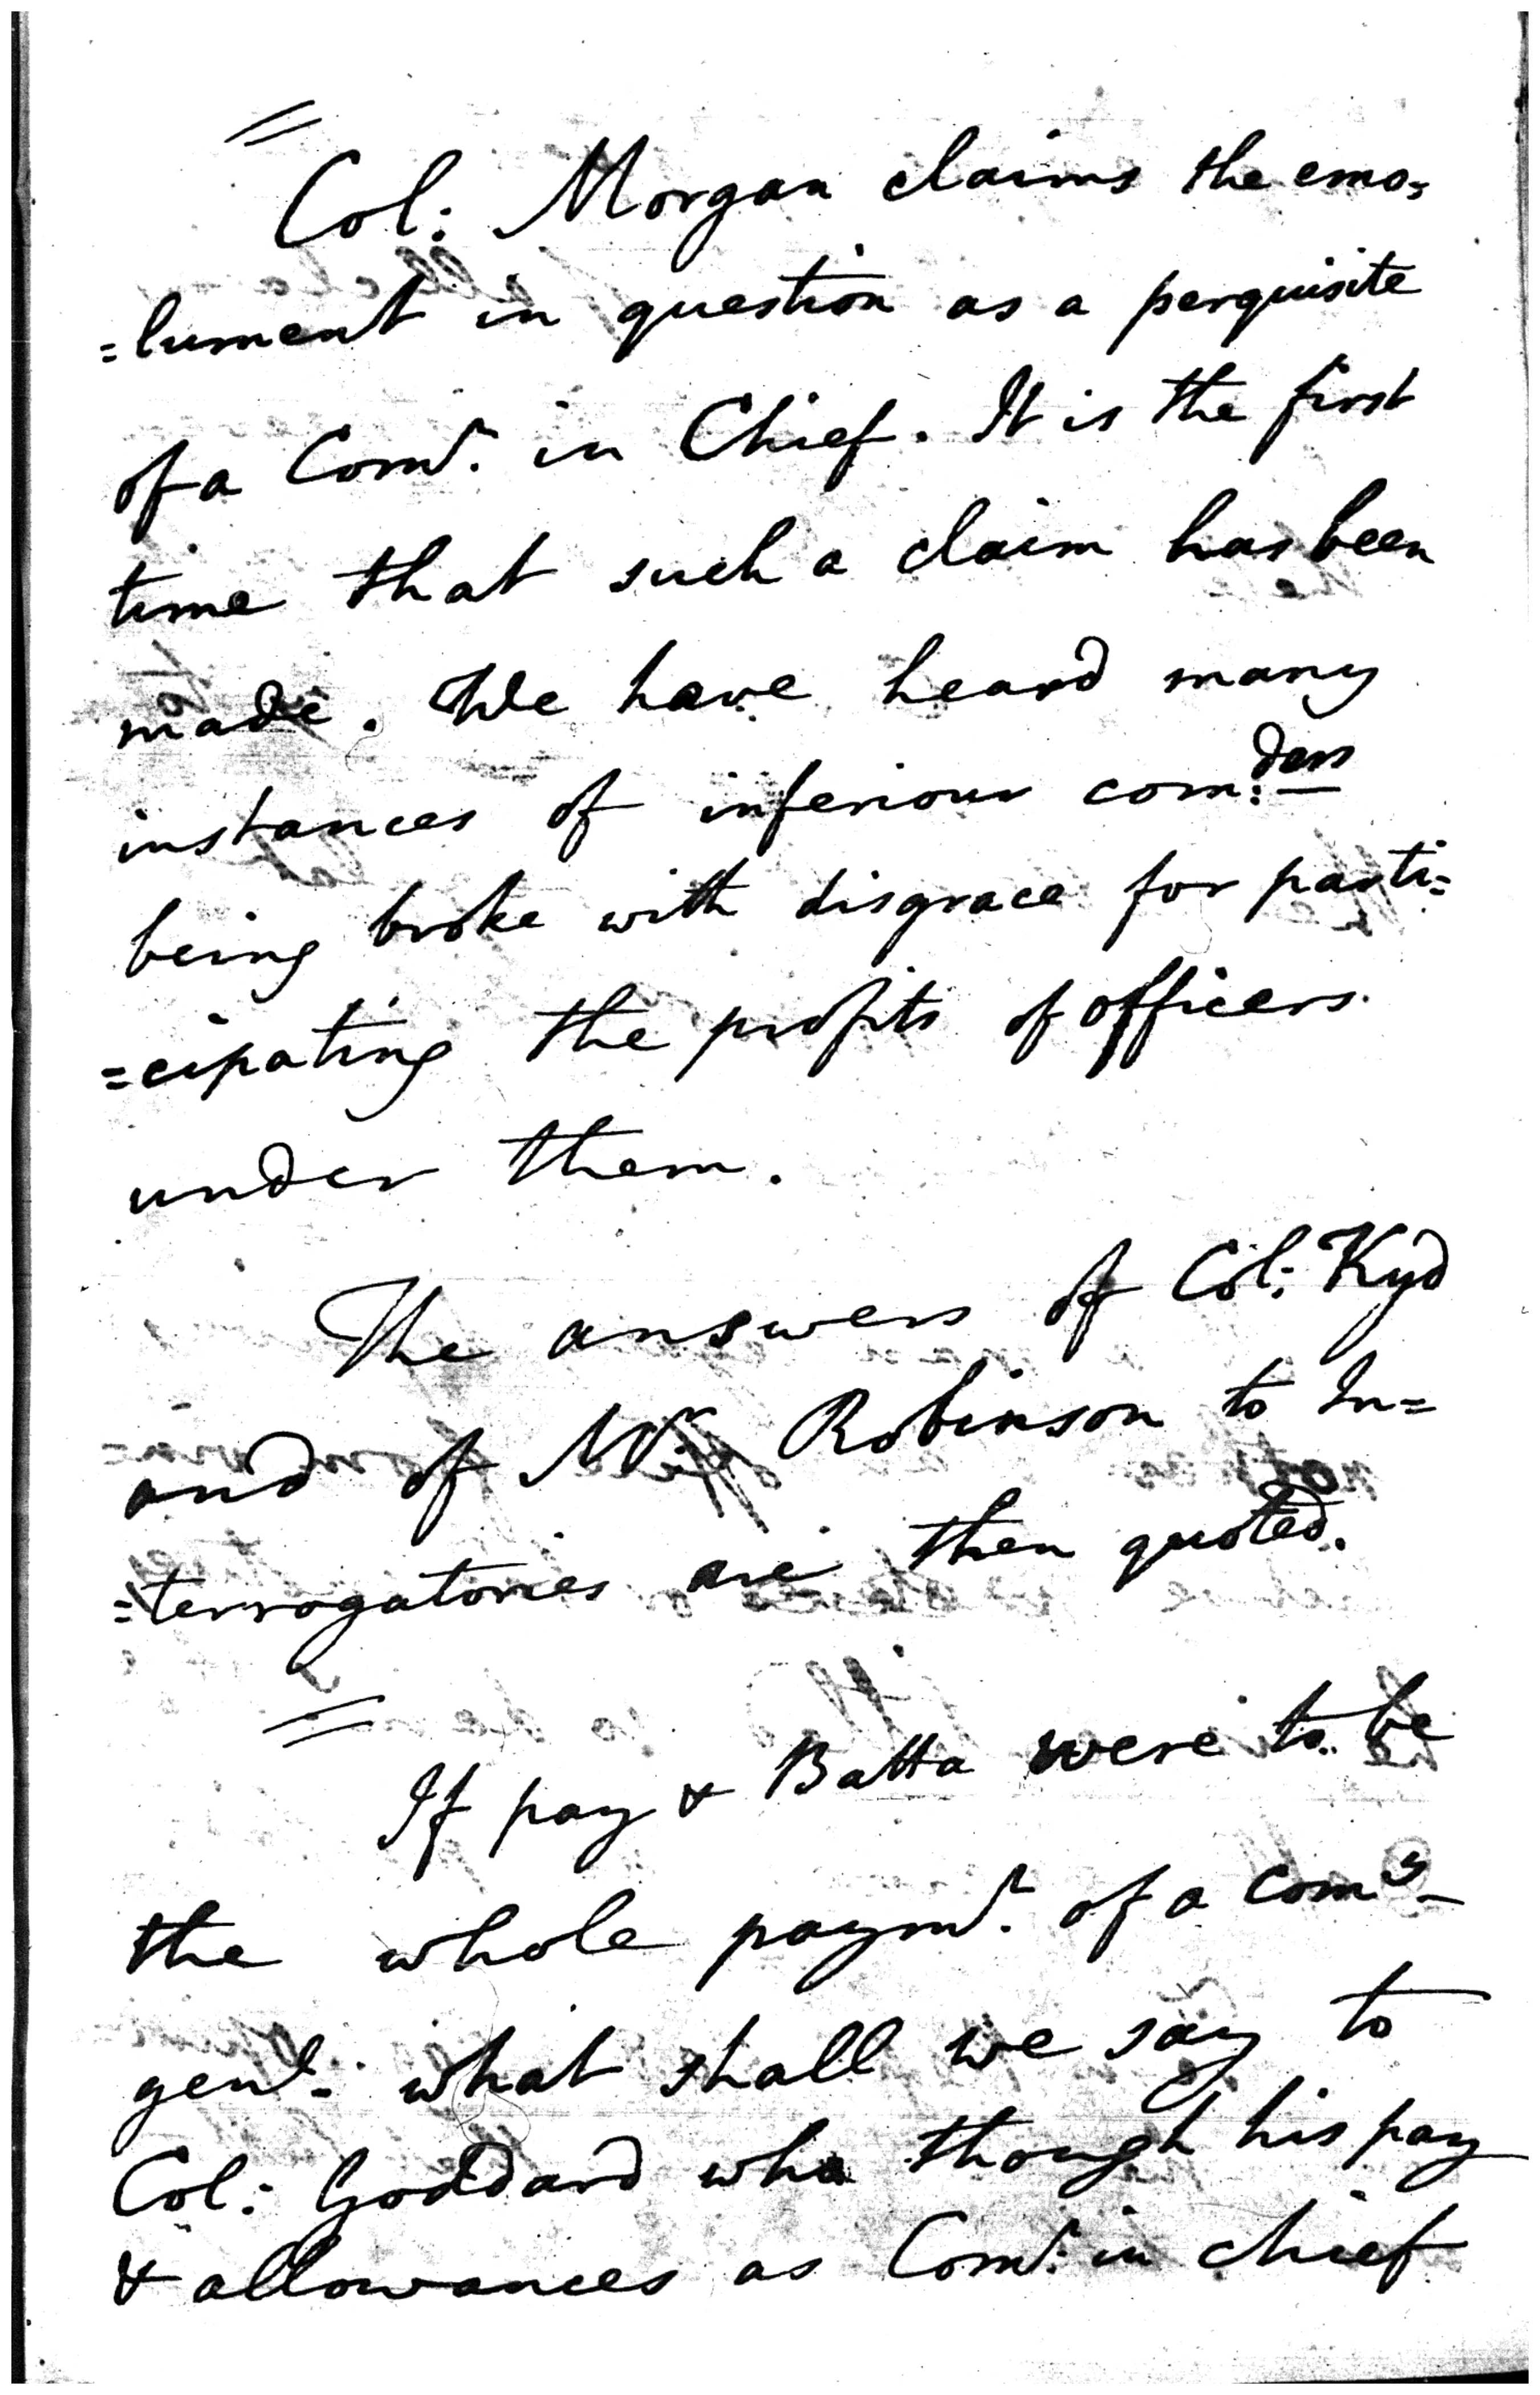 Col: Morgan claims the emo=
=lument in question as a perquisite
of a Comr. in Chief. It is the first
time that such a claim has been
made. We have heard many
instances of inferiour com:ders
being broke with disgrace for parti=
=cipating the profits of officers
under them.
The answers of Col: Kyd
and of Mr. Robinson to In=
=terrogatories are then quoted.
If pay & Batta were to be
the whole paymt. of a comy
genl. what shall we say to
Col: Goddard who though his pay
& allowances as Comr. in chief